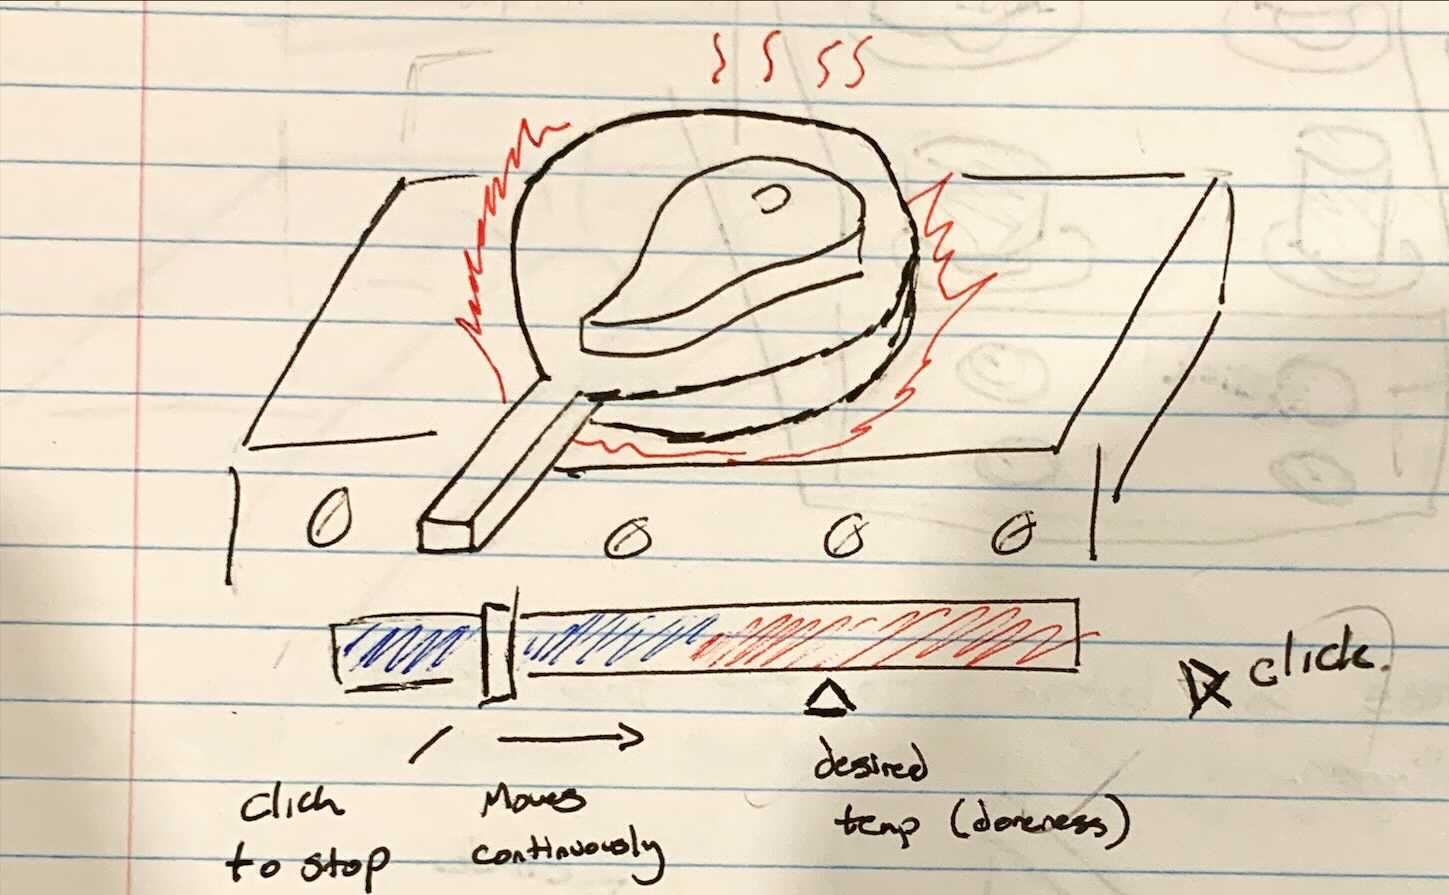 click.
click
to stop
Moves
continuously
desired
temp (doneness)